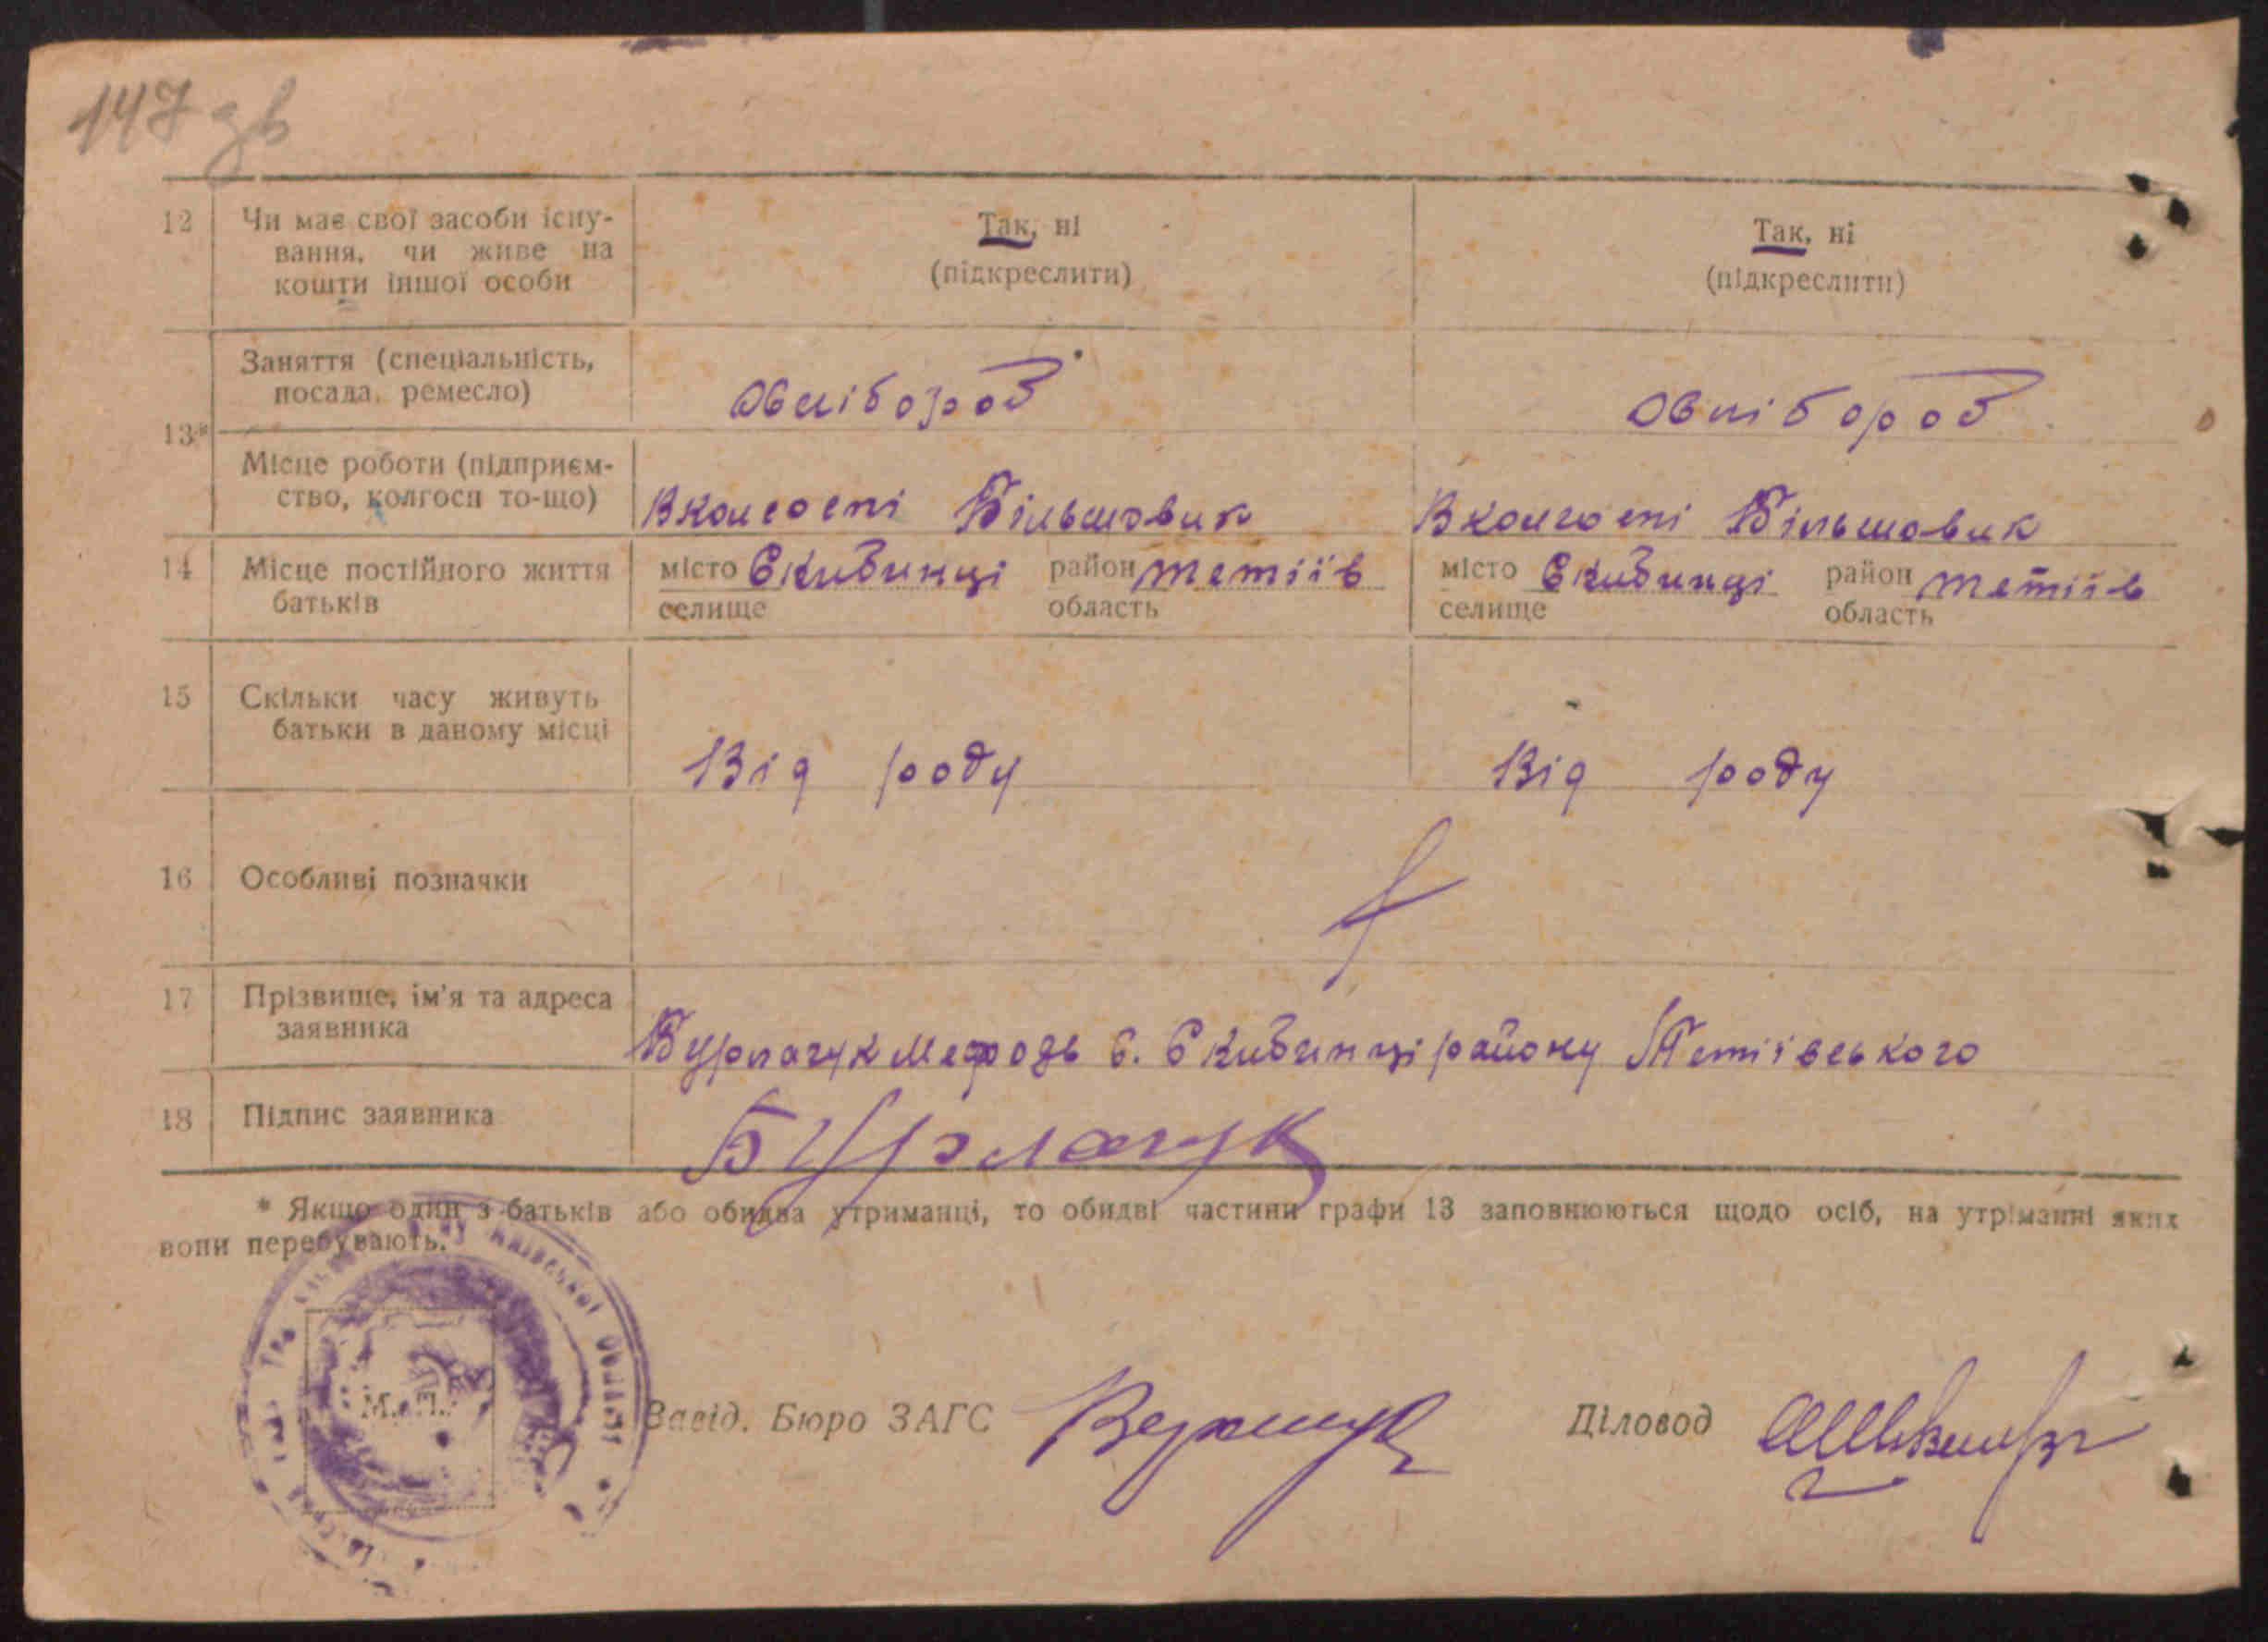 147 зв
12 Чи має свої засоби існу- Так, ні Так, ні
вання, чи живе на (підкреслити) (підкреслити)
кошти іншої особи
Заняття (спеціальність,
посада, ремесло) Овчібороб Овчібороб
13*
Місце роботи (підприєм-
ство, колгосп то-що) В колгоспі Більшовик В колгоспі Більшовик
14 Місце постійного життя місто Скибинці район Тетіїв місто Скибинці район Тетіїв
батьків селище область селище область
15 Скільки часу живуть
батьки в даному місці Від роду Від роду
16 Особливі позначки
17 Прізвище, ім'я та адреса
заявника Бурлачук Мефодь с. Скибинці району Тетіївського
18 Підпис заявника Бурлачук
* Якщо один з батьків або обидва утриманці, то обидві частини графи 13 заповнюються щодо осіб, на утріманні яких
вони перебувають.
Київської Області
М. П. Завід. Бюро ЗАГС Діловод